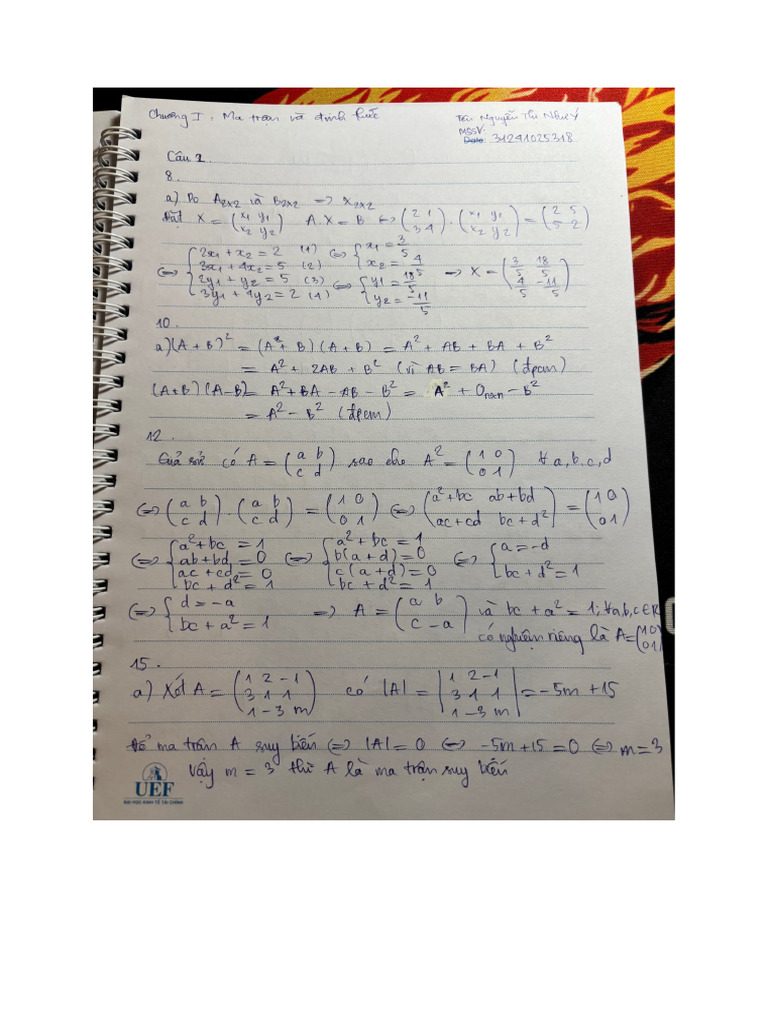 Chương I : Ma trận và định thức
Tên: Nguyễn Thị Như Ý
MSSV:
Date: 31241025318
Câu 1.
8.
a) Do A2x2 và B2x2 => X2x2
Đặt X = (x1 y1; x2 y2) A.X = B <-> (2 1; 3 4) . (x1 y1; x2 y2) = (2 5; 5 2)
<=> { 2x1 + x2 = 2 (1) <=> { x1 = 3/5
3x1 + 4x2 = 5 (2) x2 = 4/5
2y1 + y2 = 5 (3) <=> { y1 = 18/5 -> X = (3/5 18/5; 4/5 -11/5)
3y1 + 4y2 = 2 (4) y2 = -11/5
10.
a) (A + B)² = (A + B) (A + B) = A² + AB + BA + B²
= A² + 2AB + B² (vì AB = BA) (đpcm)
(A+B) (A-B) = A² + BA - AB - B² = A² + 0nxn - B²
= A² - B² (đpcm)
12.
Giả sử có A = (a b; c d) sao cho A² = (1 0; 0 1) ∀ a,b,c,d
<=> (a b; c d) . (a b; c d) = (1 0; 0 1) <=> (a²+bc ab+bd; ac+cd bc+d²) = (1 0; 0 1)
<=> { a²+bc = 1 <=> { a²+bc = 1 <=> { a = -d
ab+bd = 0 b(a+d) = 0 bc + d² = 1
ac+cd = 0 c(a+d) = 0
bc + d² = 1 bc + d² = 1
<=> { d = -a => A = (a b; c -a) và bc + a² = 1; ∀a,b,c∈R
bc + a² = 1 có nghiệm riêng là A = (1 0; 0 1)
15.
a) Xét A = (1 2 -1; 3 1 1; 1 -3 m) có |A| = |1 2 -1; 3 1 1; 1 -3 m| = -5m + 15
Để ma trận A suy biến <=> |A| = 0 <=> -5m + 15 = 0 <=> m = 3
Vậy m = 3 thì A là ma trận suy biến
UEF
ĐẠI HỌC KINH TẾ TÀI CHÍNH